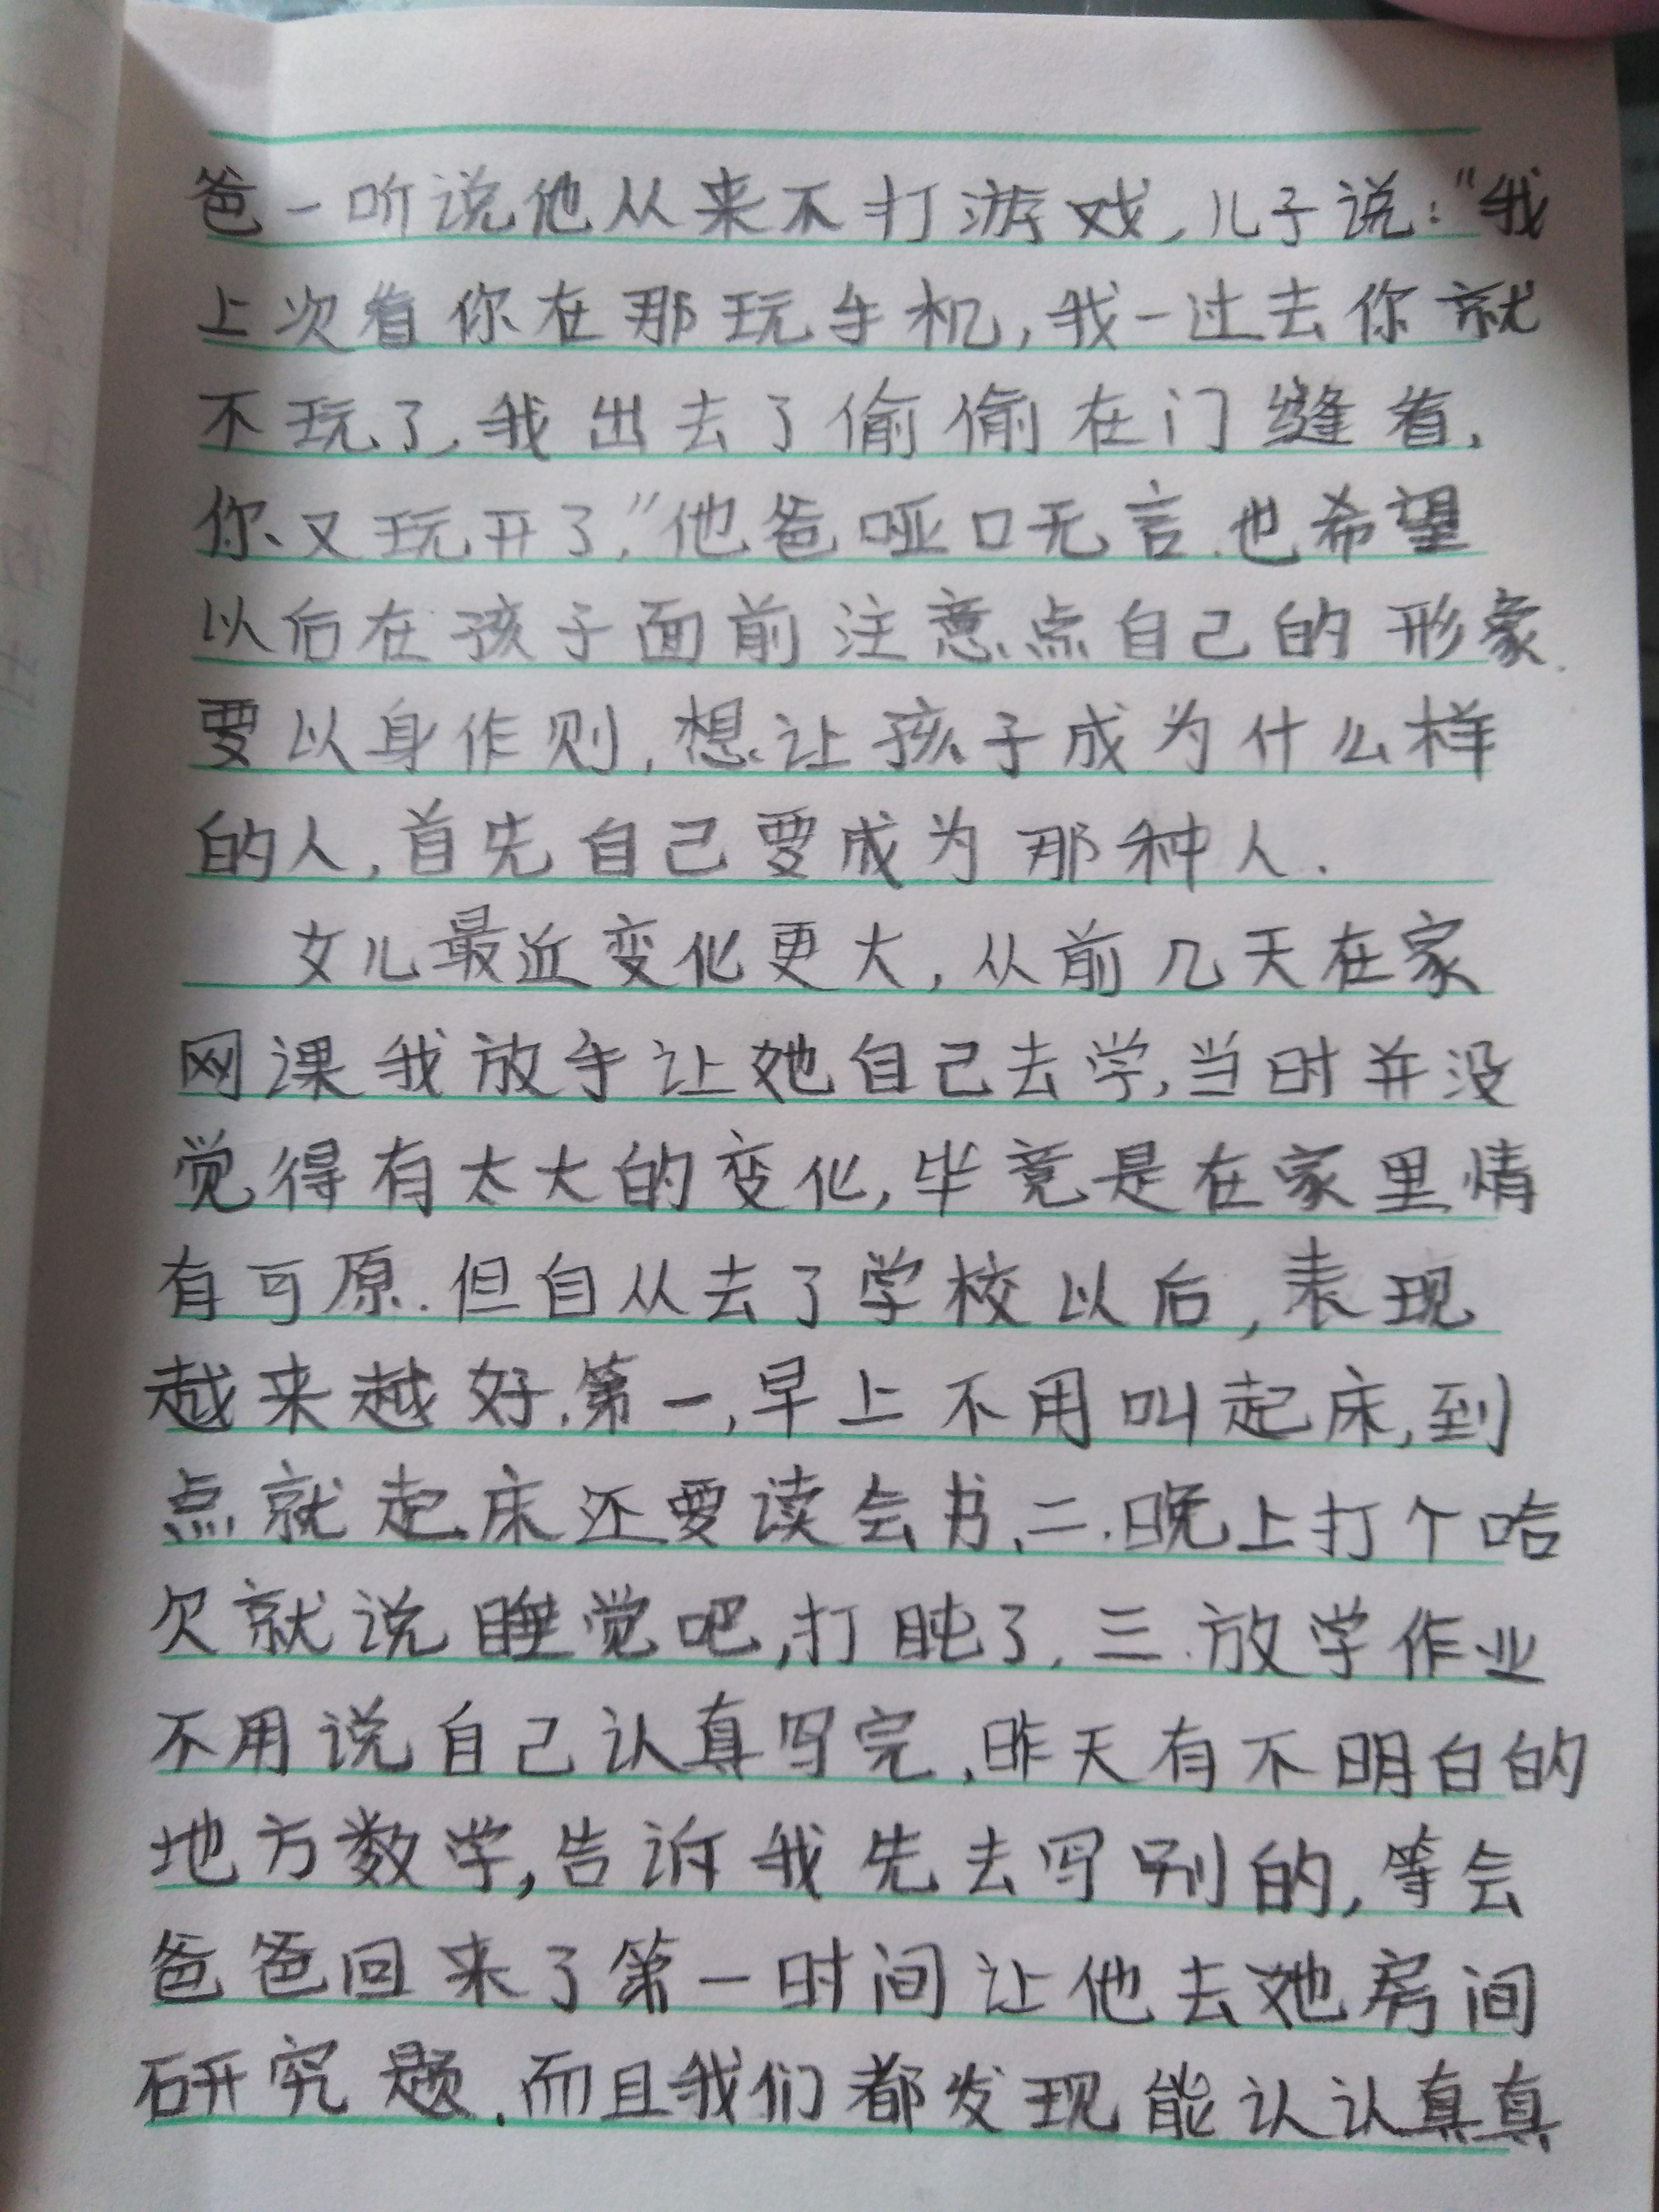 爸一听说他从来不打游戏,儿子说:"我
上次看你在那玩手机,我一过去你就
不玩了,我出去了偷偷在门缝看,
你又玩开了,"他爸哑口无言.也希望
以后在孩子面前注意点自己的形象.
要以身作则,想让孩子成为什么样
的人,首先自己要成为那种人.
女儿最近变化更大,从前几天在家
网课我放手让她自己去学,当时并没
觉得有太大的变化,毕竟是在家里情
有可原.但自从去了学校以后,表现
越来越好.第一,早上不用叫起床,到
点就起床还要读会书,二.晚上打个哈
欠就说睡觉吧,打盹了,三.放学作业
不用说自己认真写完,昨天有不明白的
地方数学,告诉我先去写别的,等会
爸爸回来了第一时间让他去她房间
研究题.而且我们都发现能认认真真